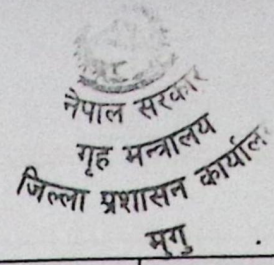 नेपाल सरकार
गृह मन्त्रालय
जिल्ला प्रशासन कार्याल
मुगु